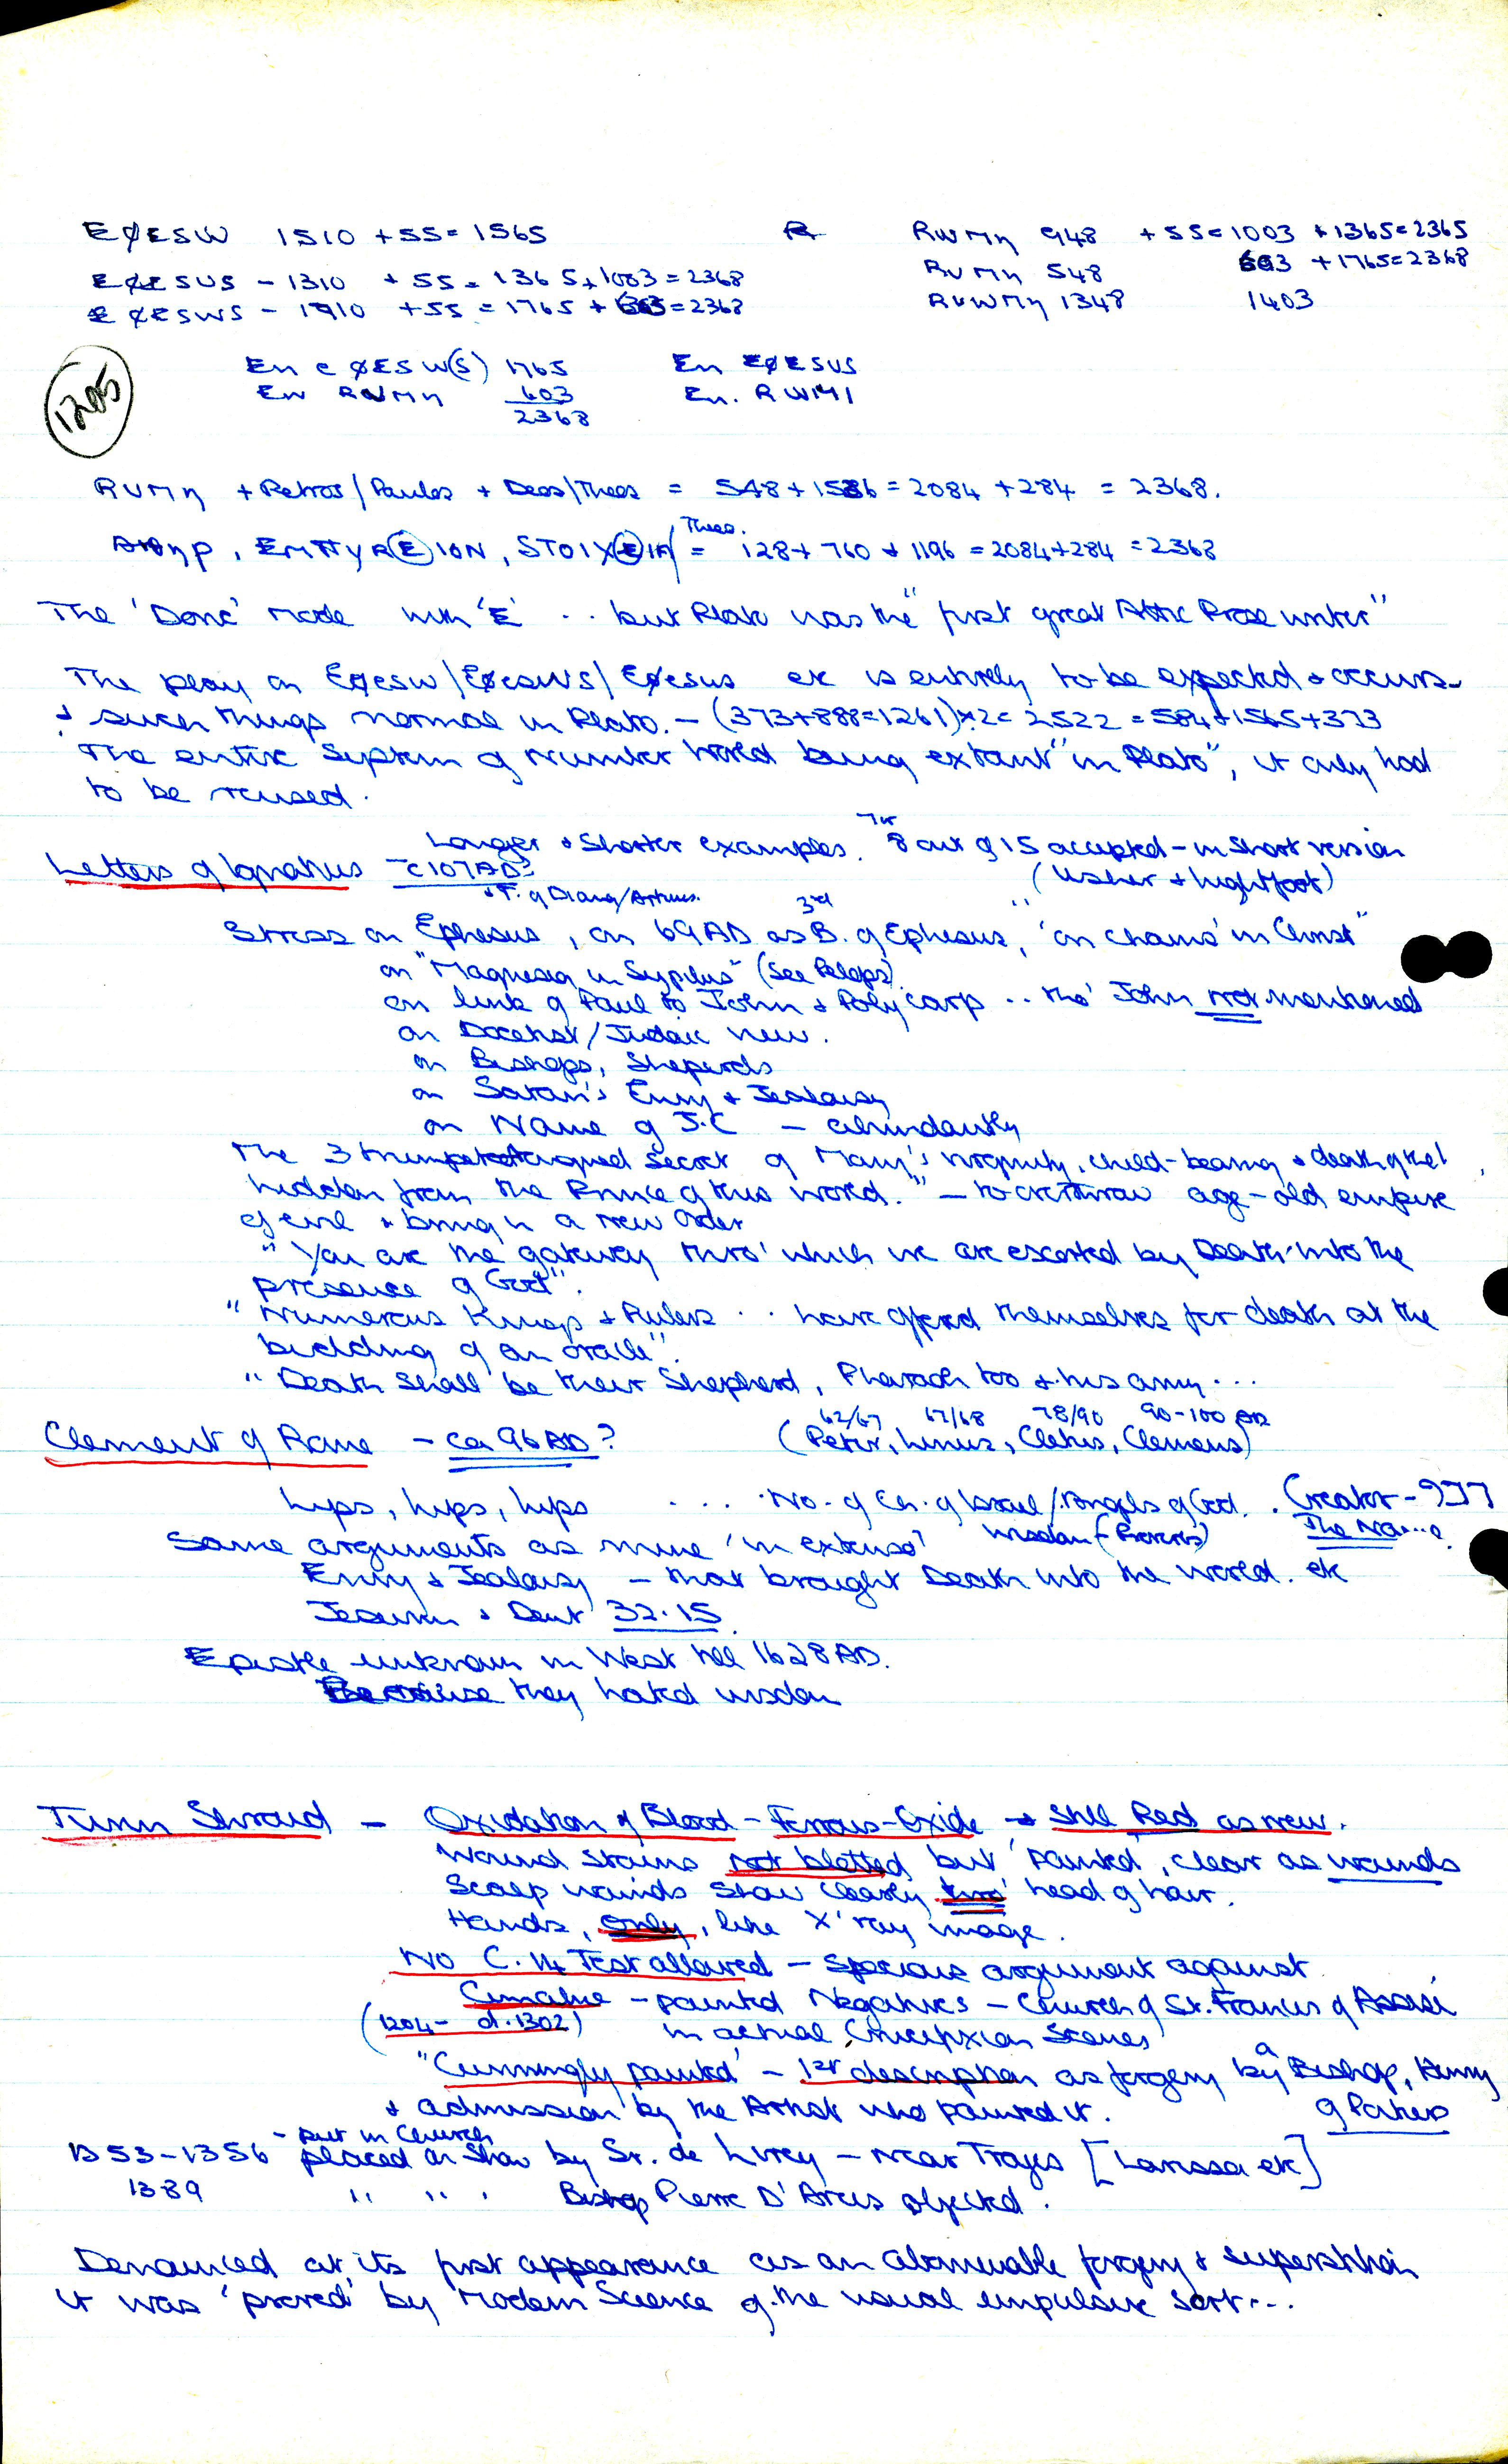 EØESW 1510 +55= 1565
RWMη 948 +55=1003 +1365=2365
EØESUS - 1310 +55=1365+1003=2368
RUMη 548 603 +1765=2368
EØESWS - 1710 +55=1765+603=2368
RUWMη 1348 1403
En EØESW(S) 1765 En EØESUS
En RUMη 603 En. RWMI
2368
1205
RUMη + Petros/Paulos + Deos/Theos = 548+1536=2084+284 = 2368.
, EMΠYR(E)ION, STOIX(E)IA/Theo. = 128+760+1196=2084+284=2368
The 'Doric' mode with 'E' .. but Plato was the "first great Attic Prose writer"
The play on EØesw/EØesws/EØesus etc is entirely to be expected & occurs -
& such things normal in Plato. - (373+888=1261)×2= 2522 =584+1565+373
The entire System of Number Word being extant "in Plato", it only had
to be reused.
Longer & Shorter examples. 7 or 8 out of 15 accepted - in short version
Letters of Ignatius - c107AD? (Usher & Lightfoot)
+T. of Diana/Artemis.
Stress on Ephesus, on 69AD as 3rd B. of Ephesus, "on 'chains' in Christ"
on "Magnesia in Sypilus" (See Pelops)
on link of Paul to John & Polycarp .. tho' John not mentioned
on Docetist/Judaic view.
on Bishops, Sheperds
on Satan's Envy & Jealousy
on Name of J.C - abundantly
The 3 trumpet-tongued secret of Mary's virginity, child-bearing & death of the L
hidden from the Prince of this world." - to overthrow age-old empire
of evil & bring in a new Order
"You are the gateway thro' which we are escorted by Death into the
presence of God".
"Numerous Kings & Rulers .. have offered themselves for death at the
bidding of an oracle".
"Death shall be their Shepherd, Pharaoh too & his army...
62/67 67/68 78/90 90-100 AD
Clement of Rome - ca 96AD? (Peter, Linus, Cletus, Clemens)
Lips, Lips, Lips .... No. of Ch. of Israel/Angels of God. Creator - 977
Same arguments as mine 'in extenso' Wisdom (- Proverbs) The Name.
Envy & Jealousy - that brought Death into the world. etc
Jesurun & Deut 32.15.
Epistle unknown in West till 1628AD.
Because they hated wisdom
Turin Shroud - Oxidation of Blood - Ferrous-Oxide → still Red as new.
Wound stains not blotted, but 'painted', clear as wounds
Scalp wounds show clearly thro' head of hair.
Hands, only, like X'ray image.
No C.14 Test allowed - Specious argument against
Cimabue - painted Negatives - Church of St. Francis of Assisi
(1204- d.1302) in actual Crucifixion Scenes
"Cunningly painted" - 1st description as forgery by a Bishop, Henry
& admission by the Artist who painted it. of Poitiers
- put in Church
1353-1356 placed on show by Sr. de Lirey - near Troyes [Larissa etc]
1389 " " " Bishop Pierre D'Arcis objected.
Denounced at its first appearance as an abominable forgery & superstition
it was 'proved' by Modern Science of the usual impulsive sort...